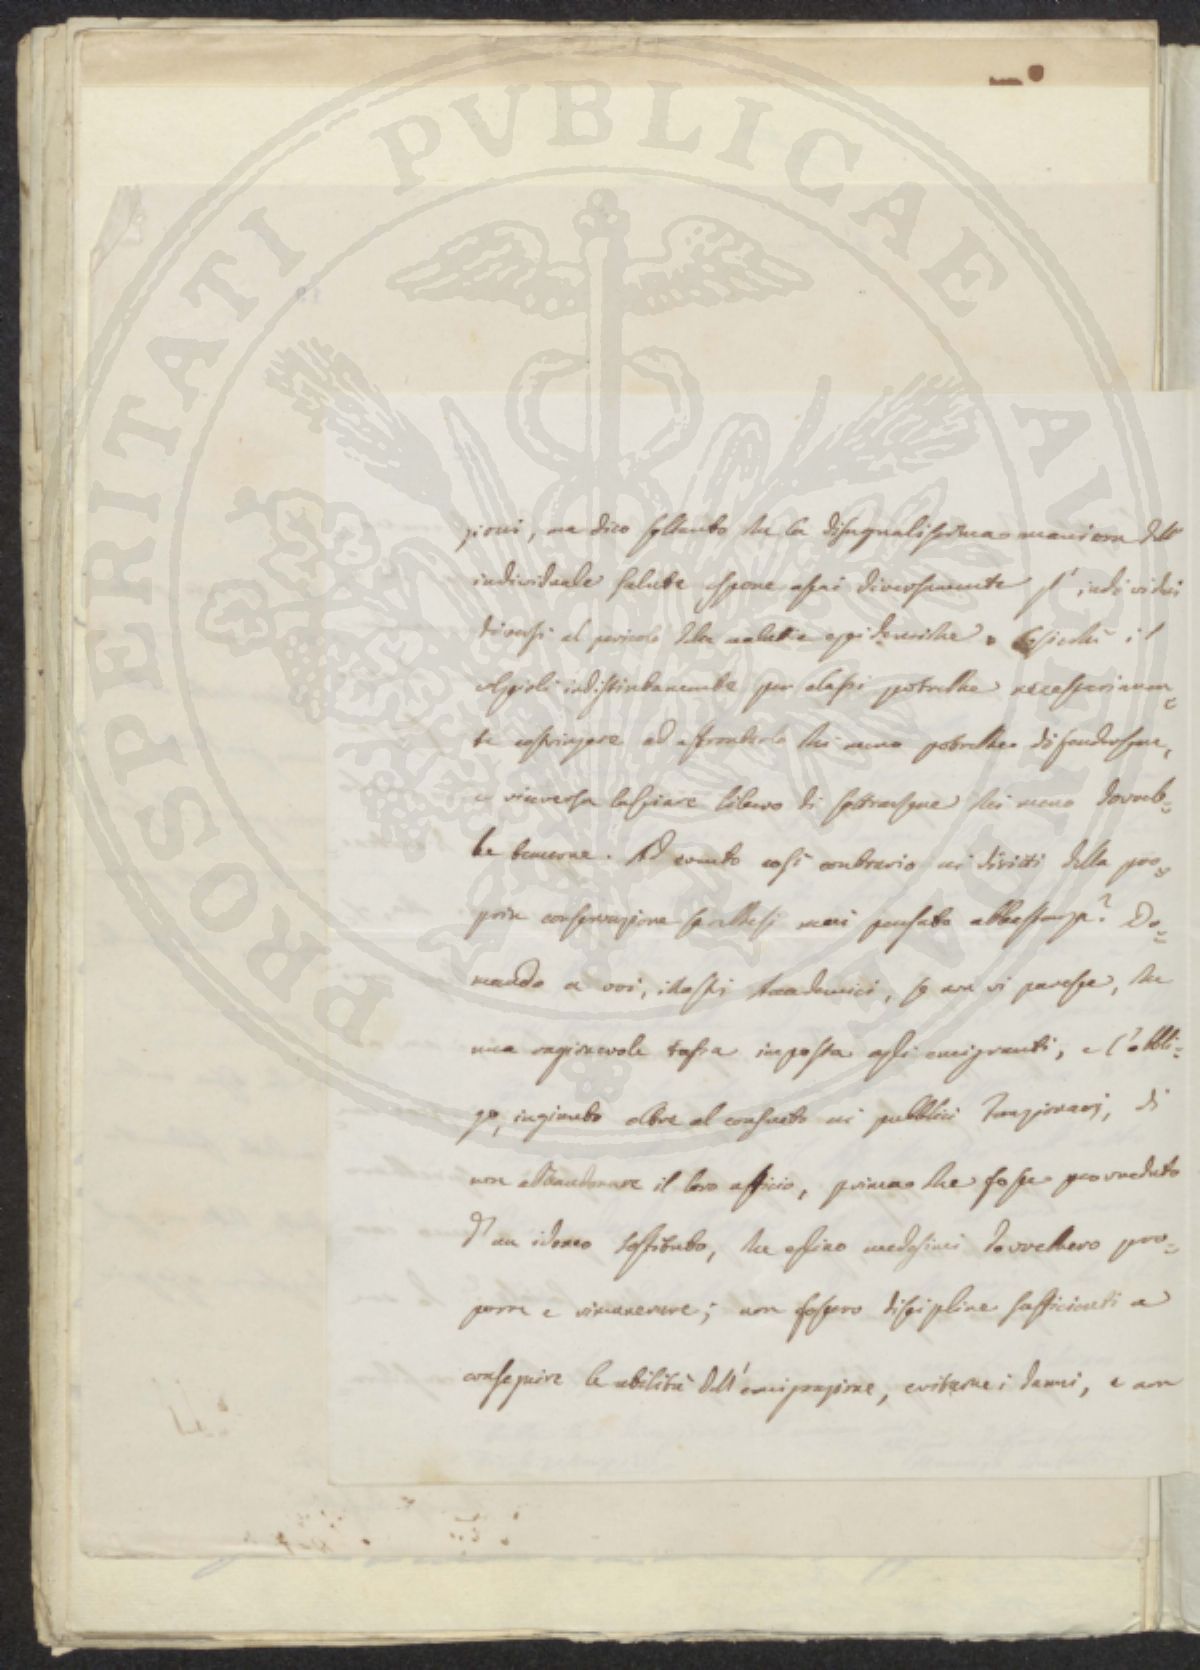 PROSPERITATI PVBLICAE AVGENDAE
zioni, ma dico soltanto che la disegualissima maniera dell'
individuale salute espone assai diversamente gl'individui
diversi al pericolo delle malattie epidemiche. Cosicchè il
indistintamente per classi potrebbe necessariamen=
te costringere ad affrontarlo chi meno potrebbe difendersene,
e viceversa lasciare libero di sottrarsene chi meno dovreb=
be temerne. Ad evento così contrario ai diritti della pro=
pria conservazione sarebbesi mai pensato abbastanza? Do=
mando a voi, illustri Accademici, se non vi paresse, che
una ragionevole tassa imposta agli emigranti, e l'obbli=
go, ingiunto oltre al consueto ai pubblici funzionarj, di
non abbandonare il loro officio, prima che fosse provveduto
d'un idoneo sostituto, che essino medesimi dovrebbero pro=
porre e rimunerare; non fossero discipline sufficienti a
conseguire le utilità dell'emigrazione, evitarne i danni, e non